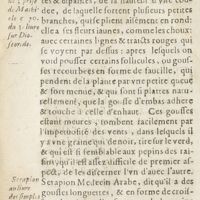 ses & espaisses, de la hauteur d'vne cou-
dee, de laquelle sortent plusieurs petites
branches, qui se plient aisement en rond:
elle a ses fleurs iaunes, comme les choux
auec certaines lignes & traicts rouges qui
se voyent par dessus: apres lesquels on
void pousser certains follicules, ou gous-
ses recourbees en forme de faucille, qui
pendent de la plante par vne petite queuë
& fort menuë, & qui sont si plattes natu-
rellement, que la gousse d'embas adhere
& touche à celle d'enhaut. Ces gousses
estant meures, tombent facilement par
l'impetuosité des vents, dans lesquels il
y a vne graine grande, d'vn noir & verd,
& qui est si semblable aux pepins des rai-
sins, qu'il est assez difficile de premier as-
pect, de les discerner l'vn d'auec l'autre.
Serapion Medecin Arabe, dit qu'il a des
gousses longuettes, & en forme de crois-
de Mathi
3. liure
sur Dio-
scoride.
Serapion
au liure
des simples